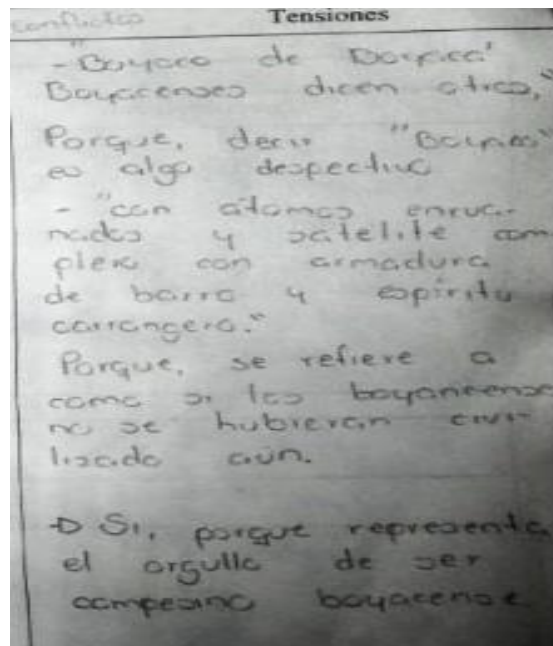 Conflictos Tensiones
-"Boyaco de Boyacá"
Boyacenses dicen otros,"
Porque, decir "Boyaco"
es algo despectivo
- "con átomos enruanados
nados y satélite com
plejo con armadura
de barro y espíritu
carranguero."
Porque, se refiere a
como si los boyacenses
no se hubieran civi-
lizado aún.
→ Si, porque representa
el orgullo de ser
campesino boyacense